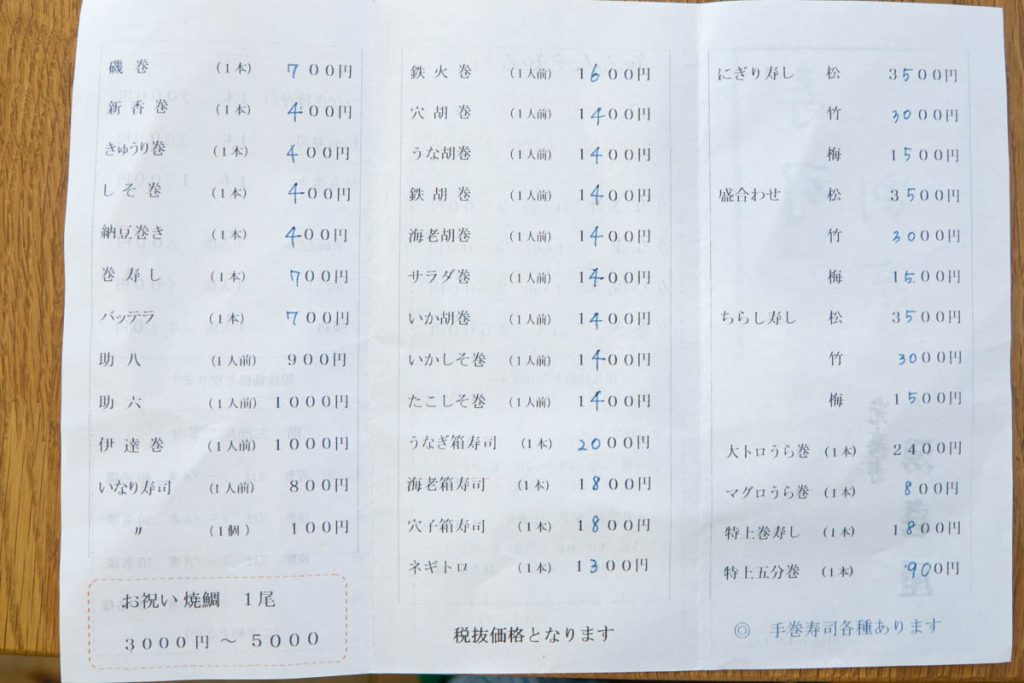 磯巻 (1本) 700円
新香巻 (1本) 400円
きゅうり巻 (1本) 400円
しそ巻 (1本) 400円
納豆巻き (1本) 400円
巻寿し (1本) 700円
バッテラ (1本) 700円
助八 (1人前) 900円
助六 (1人前) 1000円
伊達巻 (1人前) 1000円
いなり寿司 (1人前) 800円
〃 (1個) 100円
お祝い焼鯛 1尾
3000円 ～ 5000
鉄火巻 (1人前) 1600円
穴胡巻 (1人前) 1400円
うな胡巻 (1人前) 1400円
鉄胡巻 (1人前) 1400円
海老胡巻 (1人前) 1400円
サラダ巻 (1人前) 1400円
いか胡巻 (1人前) 1400円
いかしそ巻 (1人前) 1400円
たこしそ巻 (1人前) 1400円
うなぎ箱寿司 (1本) 2000円
海老箱寿司 (1本) 1800円
穴子箱寿司 (1本) 1800円
ネギトロ (1本) 1300円
税抜価格となります
にぎり寿し 松 3500円
竹 3000円
梅 1500円
盛合わせ 松 3500円
竹 3000円
梅 1500円
ちらし寿し 松 3500円
竹 3000円
梅 1500円
大トロうら巻 (1本) 2400円
マグロうら巻 (1本) 800円
特上巻寿し (1本) 1800円
特上五分巻 (1本) 900円
◎ 手巻寿司各種あります